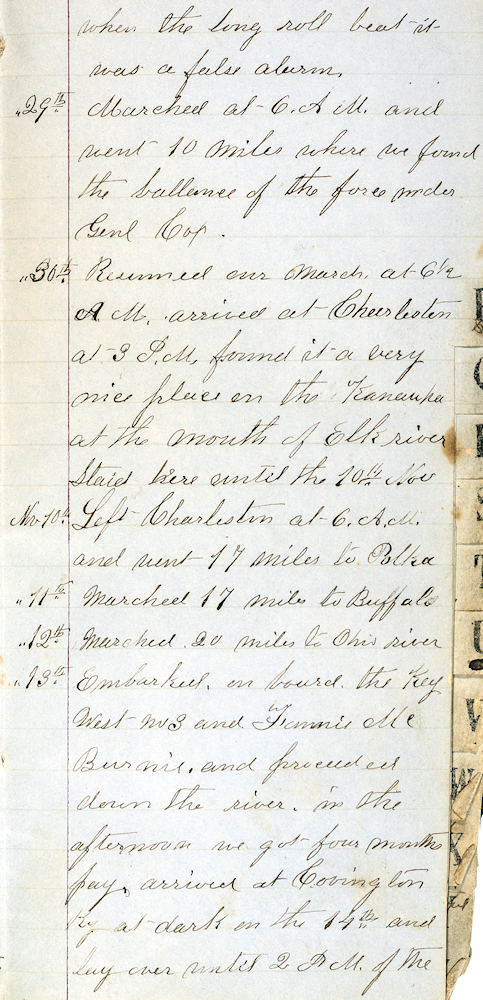 when the long roll beat it
was a false alarm.
" 29th Marched at 6. A M. and
went 10 miles where we found
the ballance of the force under
Genl Cox.
" 30th Resumed our march at 6½
A M. arrived at Charleston
at 3 P.M. found it a very
nice place on the Kanawha
at the mouth of Elk river
Staid here until the 10th Nov
Nov 10th Left Charleston at 6. A.M.
and went 17 miles to Polka
" 11th Marched 17 miles to Buffalo
" 12th Marched 20 miles to Ohio river
" 13th Embarked. on board. the Key
West no 3 and Fannie Mc
Burnie. and proceeded
down the river. in the
afternoon we got four months
pay, arrived at Covington
Ky at dark on the 14th and
lay over until 2 P.M. of the